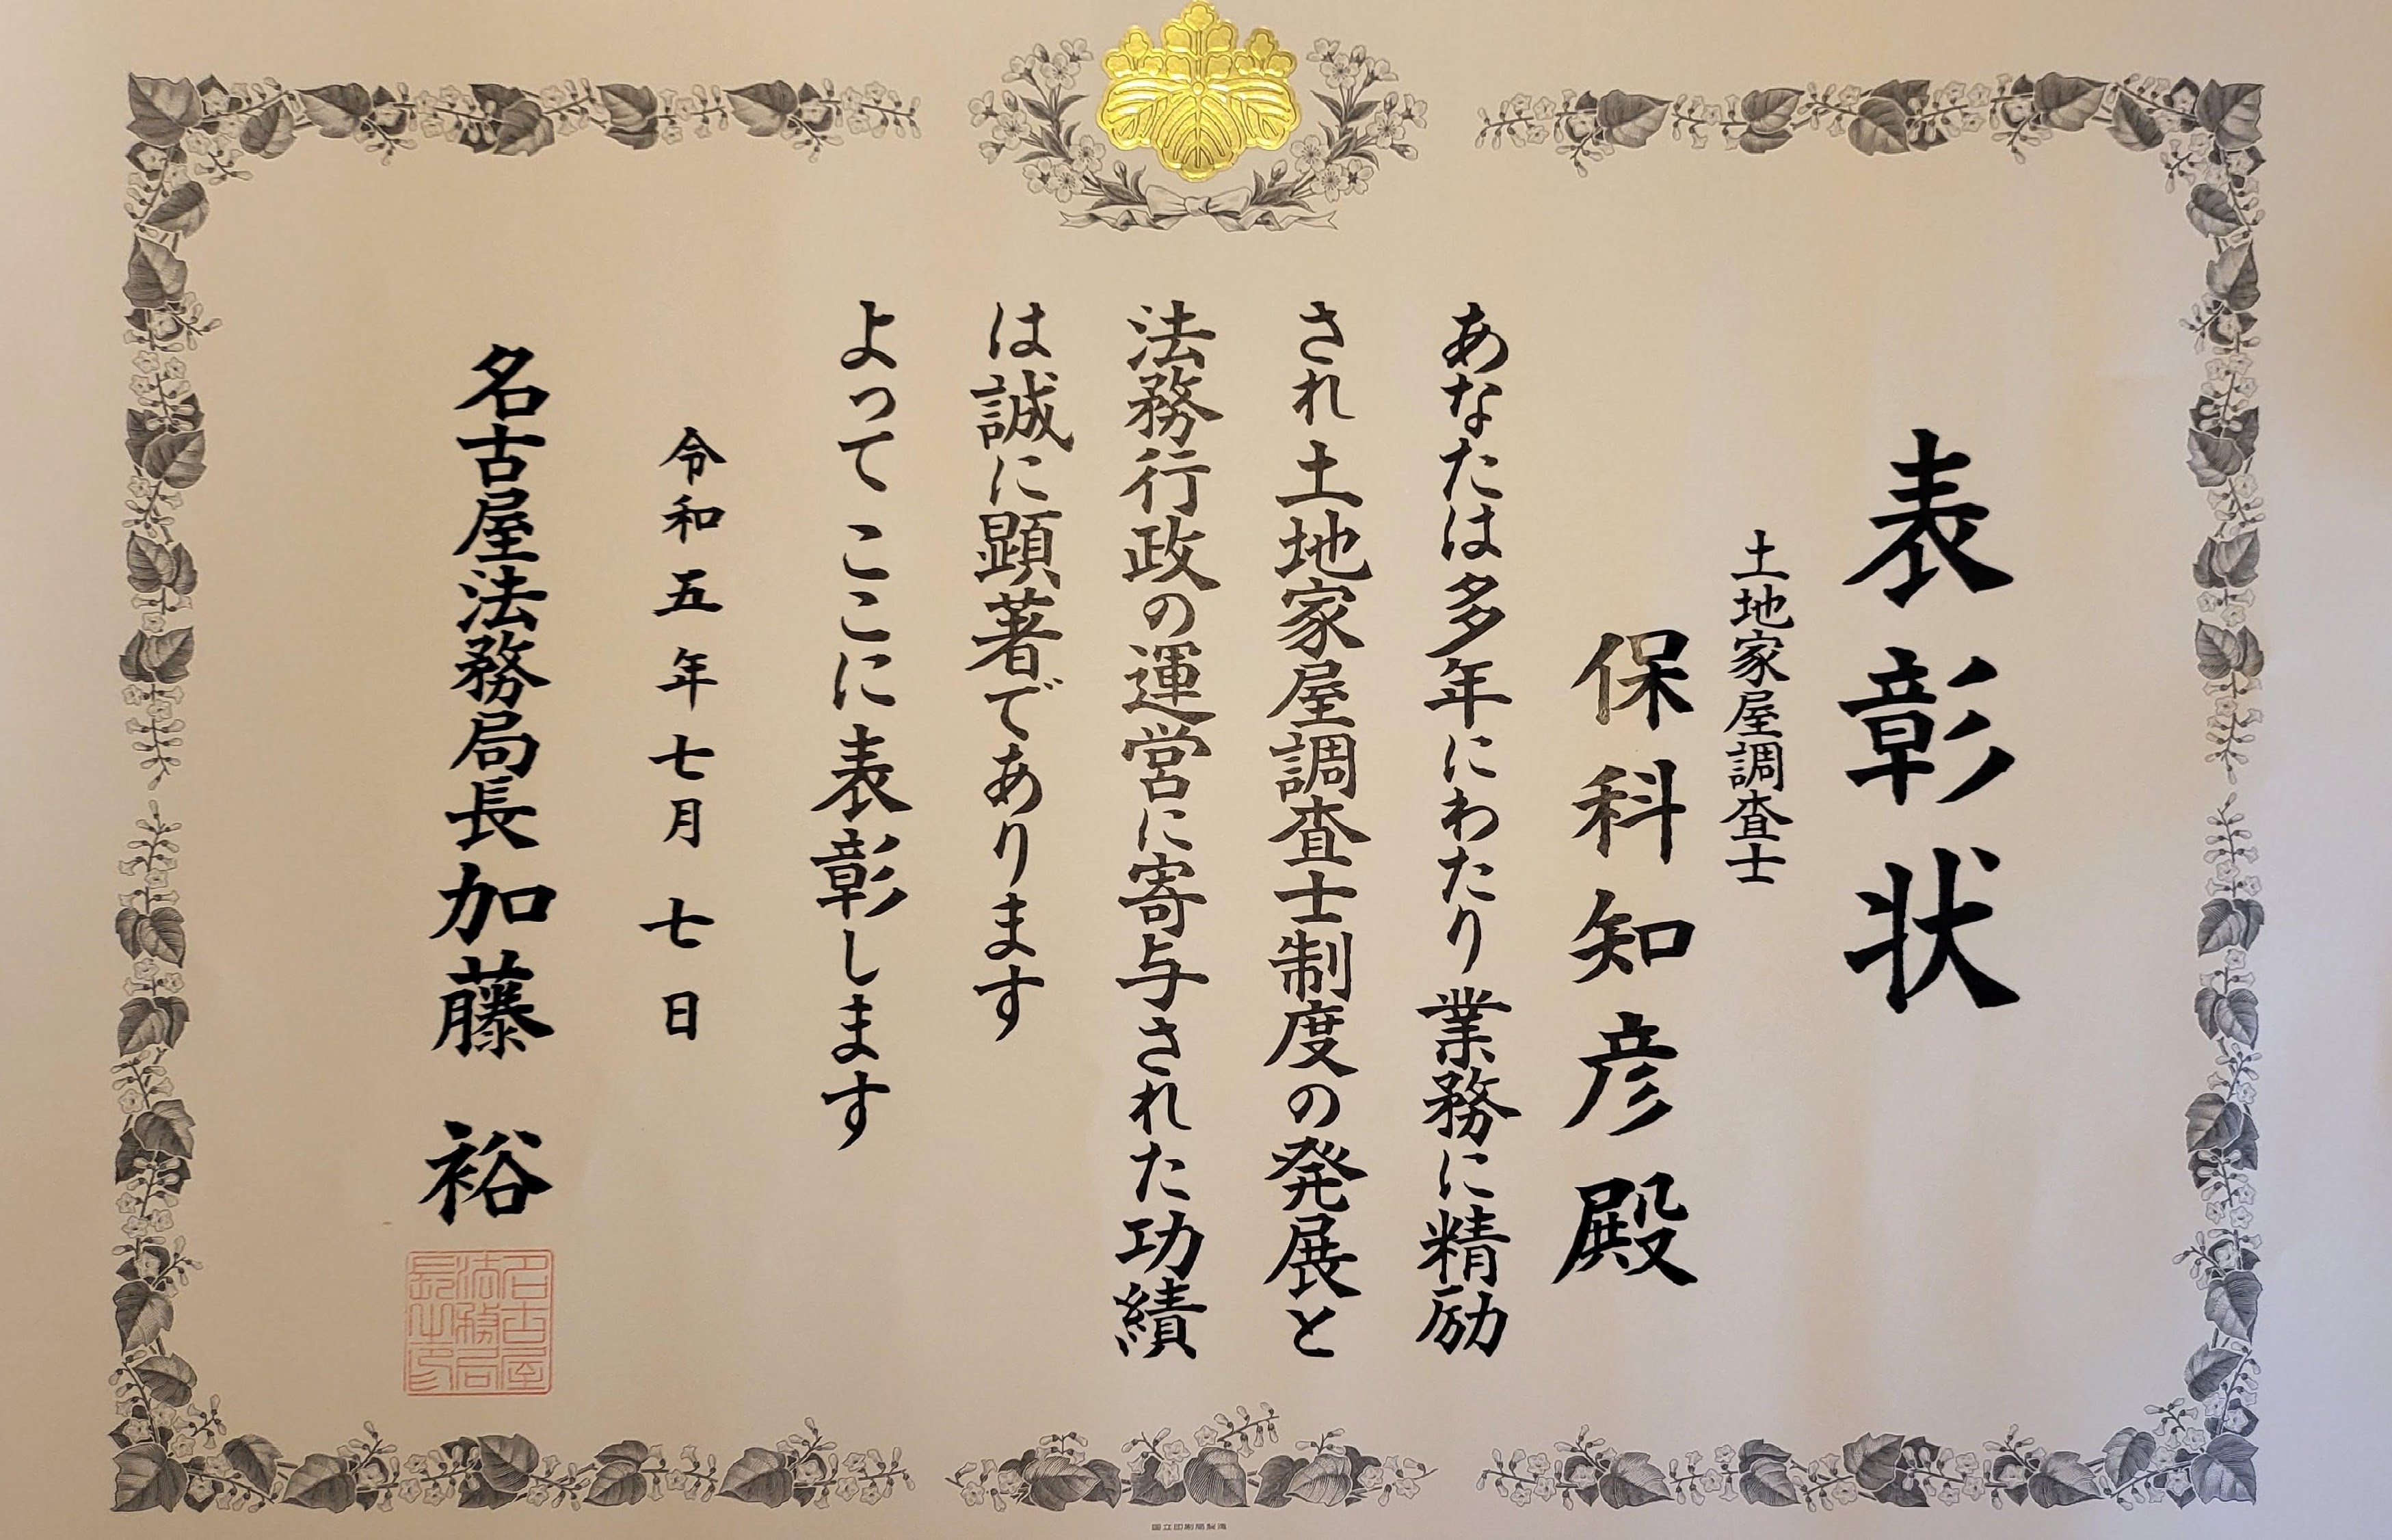 表彰状
土地家屋調査士
保科知彦殿
あなたは多年にわたり業務に精励
され土地家屋調査士制度の発展と
法務行政の運営に寄与された功績
は誠に顕著であります
よってここに表彰します
令和五年七月七日
名古屋法務局長加藤裕
名古屋
法務局
長之印
国立印刷局製造